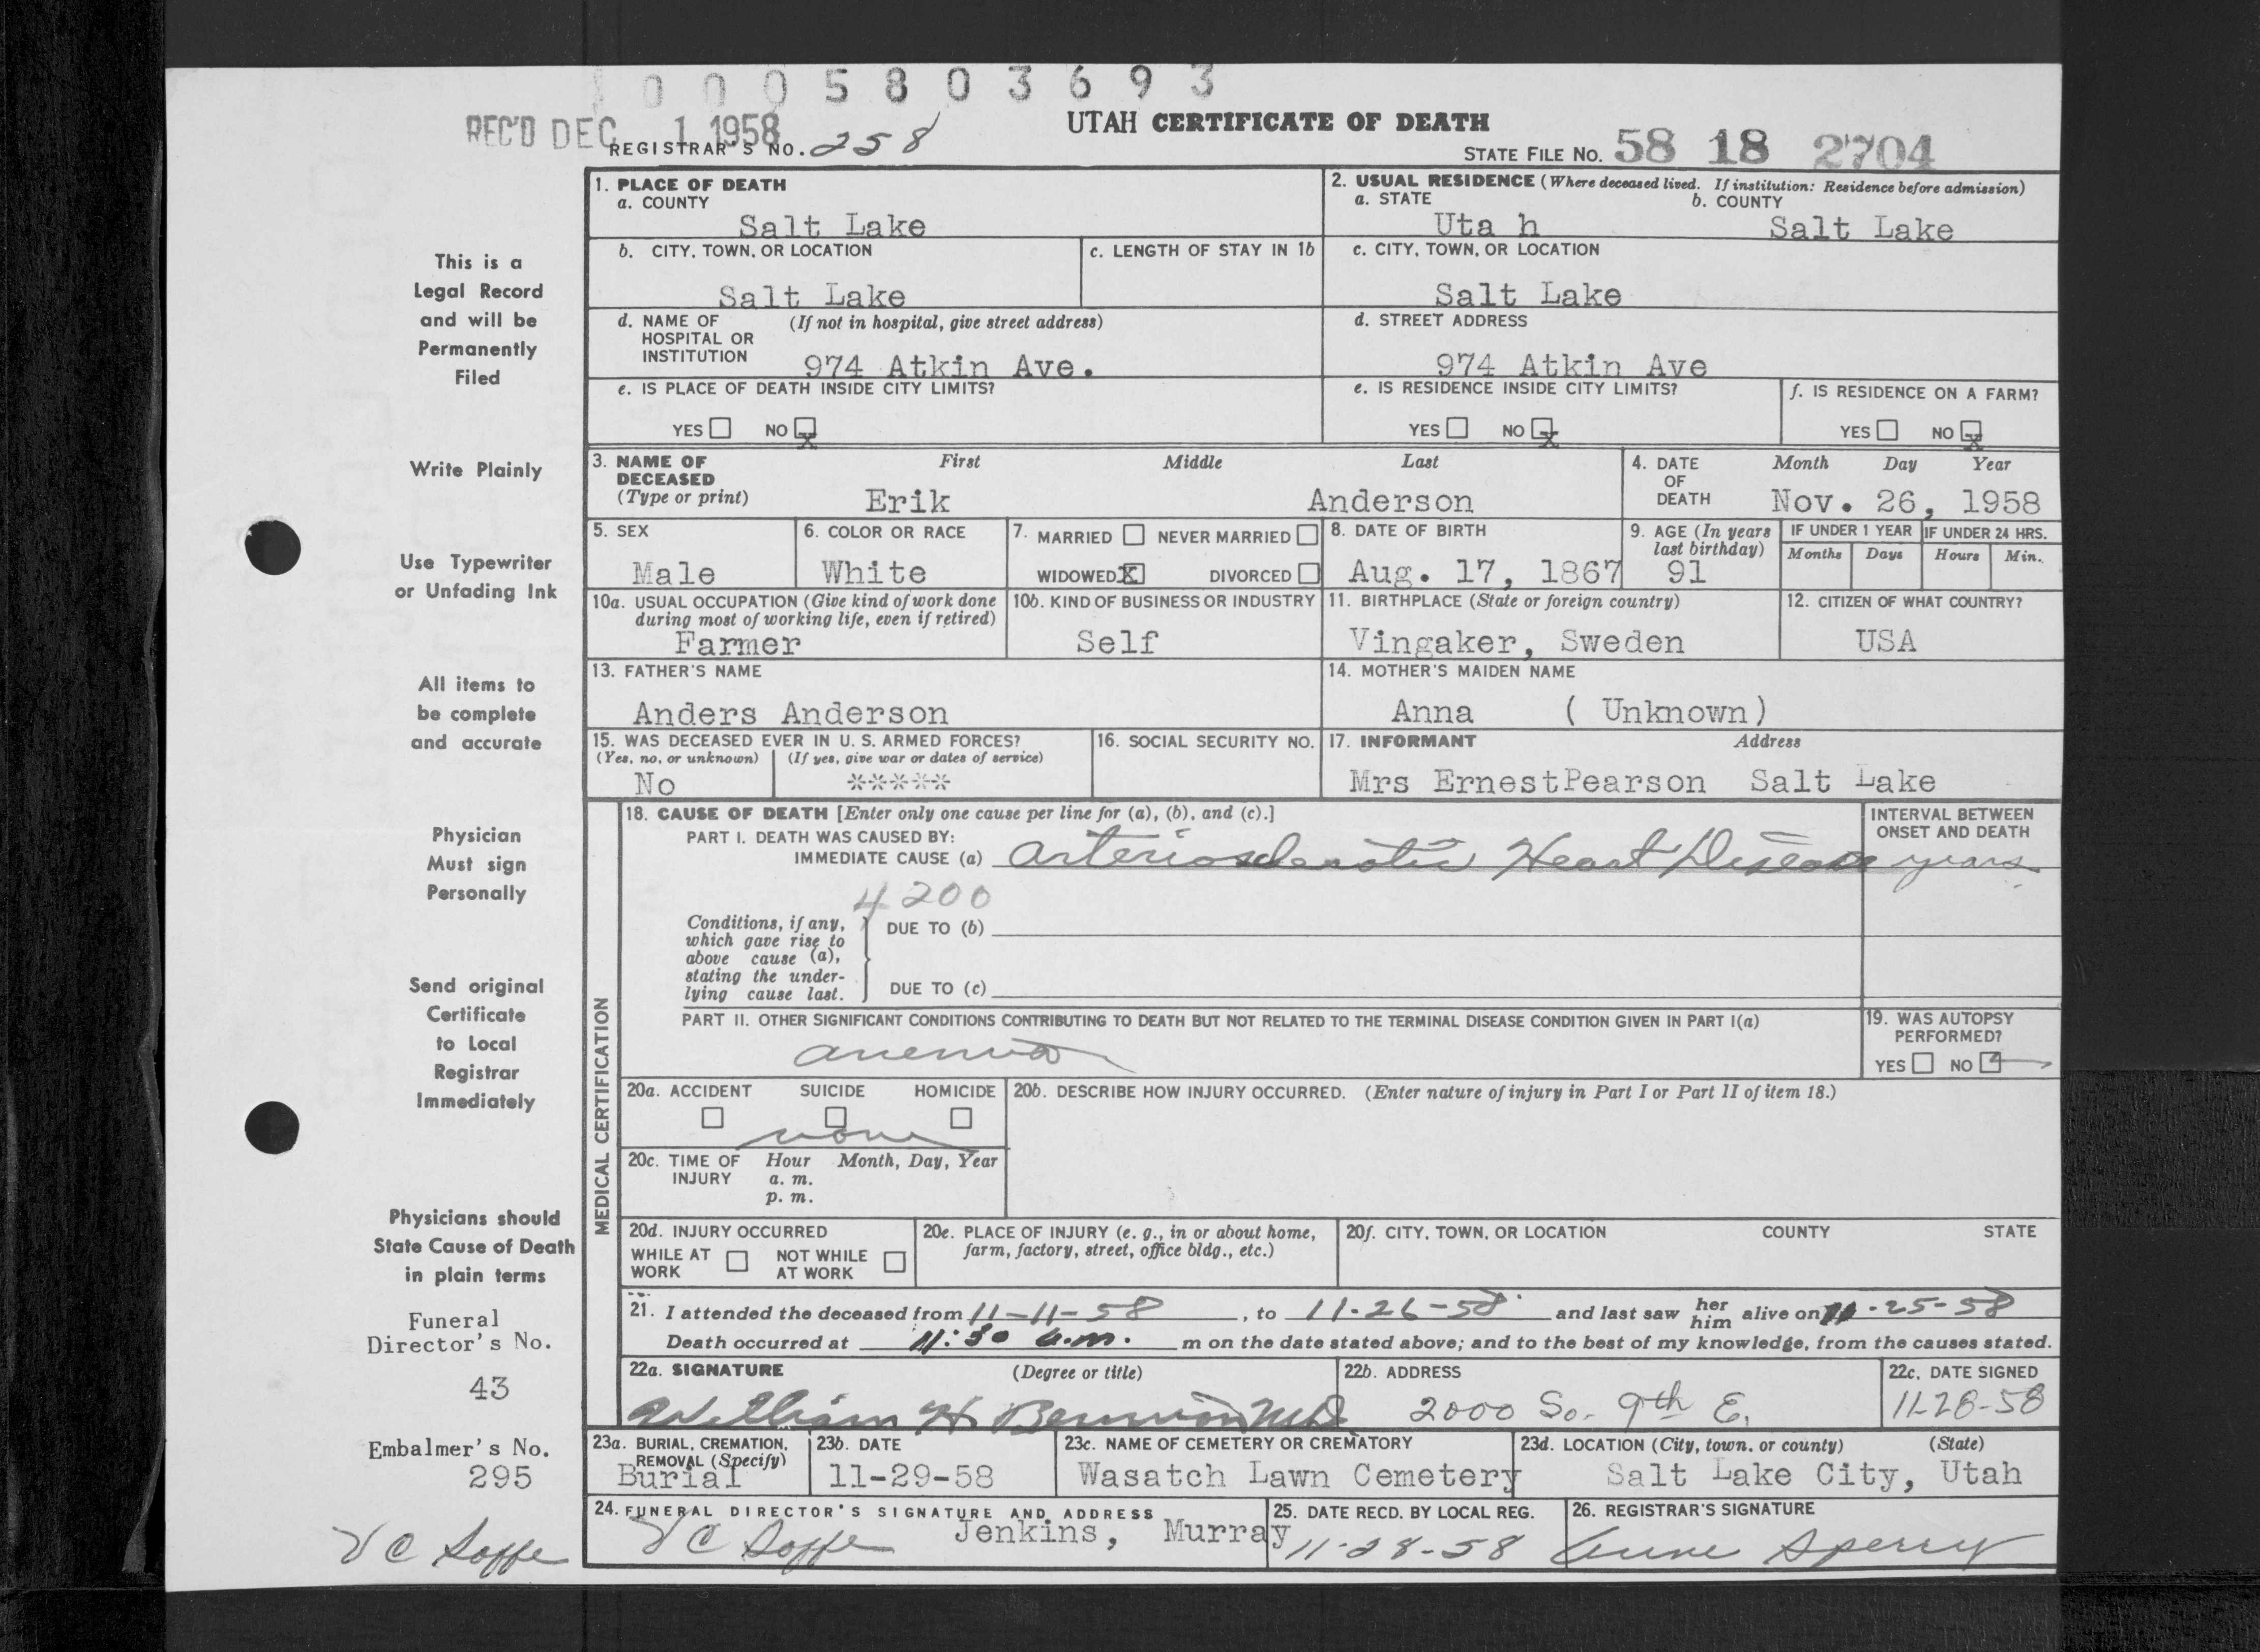 0005803693
REC'D DEC 1 1958
REGISTRAR'S NO. 258
UTAH CERTIFICATE OF DEATH
STATE FILE NO. 58 18 2704
This is a
Legal Record
and will be
Permanently
Filed
Write Plainly
Use Typewriter
or Unfading Ink
All items to
be complete
and accurate
Physician
Must sign
Personally
Send original
Certificate
to Local
Registrar
Immediately
Physicians should
State Cause of Death
in plain terms
Funeral
Director's No.
43
Embalmer's No.
295
V C Soffe
1. PLACE OF DEATH
a. COUNTY
Salt Lake
2. USUAL RESIDENCE (Where deceased lived. If institution: Residence before admission)
a. STATE b. COUNTY
Uta h Salt Lake
b. CITY, TOWN, OR LOCATION c. LENGTH OF STAY IN 1b
Salt Lake
c. CITY, TOWN, OR LOCATION
Salt Lake
d. NAME OF (If not in hospital, give street address)
HOSPITAL OR
INSTITUTION 974 Atkin Ave.
d. STREET ADDRESS
974 Atkin Ave
e. IS PLACE OF DEATH INSIDE CITY LIMITS?
YES NO X
e. IS RESIDENCE INSIDE CITY LIMITS?
YES NO X
f. IS RESIDENCE ON A FARM?
YES NO X
3. NAME OF First Middle Last
DECEASED
(Type or print) Erik Anderson
4. DATE Month Day Year
OF
DEATH Nov. 26, 1958
5. SEX
Male
6. COLOR OR RACE
White
7. MARRIED NEVER MARRIED
WIDOWED X DIVORCED
8. DATE OF BIRTH
Aug. 17, 1867
9. AGE (In years
last birthday)
91
IF UNDER 1 YEAR IF UNDER 24 HRS.
Months Days Hours Min.
10a. USUAL OCCUPATION (Give kind of work done
during most of working life, even if retired)
Farmer
10b. KIND OF BUSINESS OR INDUSTRY
Self
11. BIRTHPLACE (State or foreign country)
Vingaker, Sweden
12. CITIZEN OF WHAT COUNTRY?
USA
13. FATHER'S NAME
Anders Anderson
14. MOTHER'S MAIDEN NAME
Anna ( Unknown)
15. WAS DECEASED EVER IN U. S. ARMED FORCES?
(Yes, no, or unknown) (If yes, give war or dates of service)
No *****
16. SOCIAL SECURITY NO.
17. INFORMANT Address
Mrs ErnestPearson Salt Lake
MEDICAL CERTIFICATION
18. CAUSE OF DEATH [Enter only one cause per line for (a), (b), and (c).]
INTERVAL BETWEEN
ONSET AND DEATH
PART I. DEATH WAS CAUSED BY:
IMMEDIATE CAUSE (a) Arteriosclerotic Heart Disease years
4200
Conditions, if any,
which gave rise to
above cause (a),
stating the under-
lying cause last.
DUE TO (b)
DUE TO (c)
PART II. OTHER SIGNIFICANT CONDITIONS CONTRIBUTING TO DEATH BUT NOT RELATED TO THE TERMINAL DISEASE CONDITION GIVEN IN PART I(a)
anemia
19. WAS AUTOPSY
PERFORMED?
YES NO
20a. ACCIDENT SUICIDE HOMICIDE
none
20b. DESCRIBE HOW INJURY OCCURRED. (Enter nature of injury in Part I or Part II of item 18.)
20c. TIME OF Hour Month, Day, Year
INJURY a. m.
p. m.
20d. INJURY OCCURRED
WHILE AT NOT WHILE
WORK AT WORK
20e. PLACE OF INJURY (e. g., in or about home,
farm, factory, street, office bldg., etc.)
20f. CITY, TOWN, OR LOCATION COUNTY STATE
21. I attended the deceased from 11-11-58, to 11-26-58 and last saw her him alive on 11-25-58
Death occurred at 11:30 a.m. m on the date stated above; and to the best of my knowledge, from the causes stated.
22a. SIGNATURE (Degree or title)
William H. Bennion M.D.
22b. ADDRESS
2000 So. 9th E.
22c. DATE SIGNED
11-28-58
23a. BURIAL, CREMATION,
REMOVAL (Specify)
Burial
23b. DATE
11-29-58
23c. NAME OF CEMETERY OR CREMATORY
Wasatch Lawn Cemetery
23d. LOCATION (City, town, or county) (State)
Salt Lake City, Utah
24. FUNERAL DIRECTOR'S SIGNATURE AND ADDRESS
V C Soffe Jenkins, Murray
25. DATE RECD. BY LOCAL REG.
11-28-58
26. REGISTRAR'S SIGNATURE
Anne Sperry